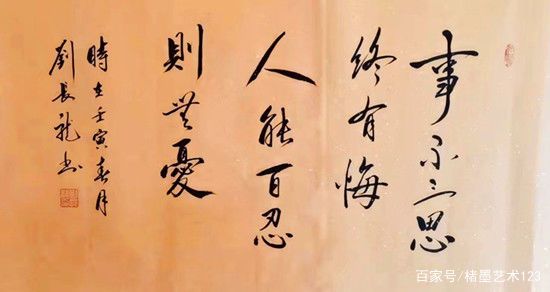 事不三思
終有悔
人能百忍
則無憂
時在壬寅春月
劉長龍书
百家号/楮墨艺术123